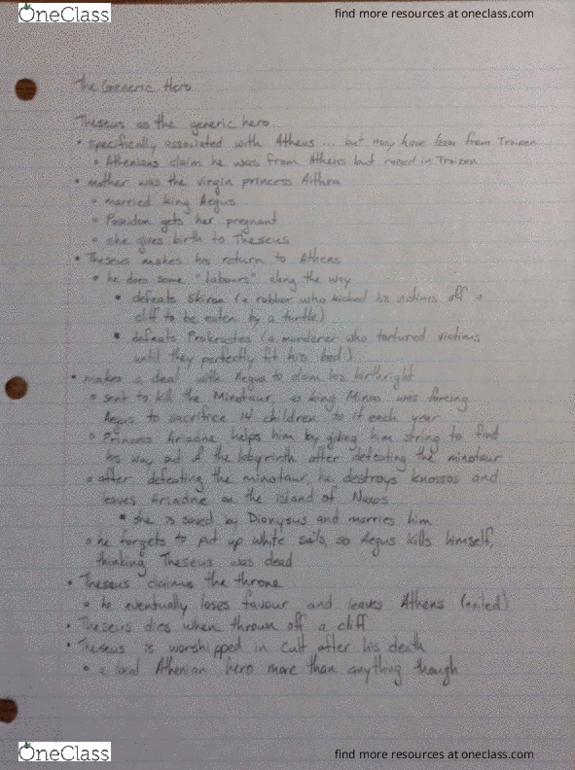 OneClass
find more resources at oneclass.com
The Generic Hero
Theseus as the generic hero
• specifically associated with Athens ... but may have been from Troizen
◦ Athenians claim he was from Athens but raised in Troizen
• mother was the virgin princess Aithra
◦ married king Aegus
◦ Poseidon gets her pregnant
◦ she gives birth to Theseus
• Theseus makes his return to Athens
◦ he does some "labours" along the way
▪ defeats Skiron (a robber who kicked his victims off a
cliff to be eaten by a turtle)
▪ defeats Prokrustes (a murderer who tortured victims
until they perfectly fit his bed)
• makes a deal with Aegus to claim his birthright
◦ sent to kill the Minotaur, as king Minos was forcing
Aegus to sacrifice 14 children to it each year
◦ Princess Ariadne helps him by giving him string to find
his way out of the labyrinth after defeating the minotaur
◦ after defeating the minotaur, he destroys Knossos and
leaves Ariadne on the island of Naxos
▪ she is saved by Dionysus and marries him
◦ he forgets to put up white sails, so Aegus kills himself,
thinking Theseus was dead
• Theseus claims the throne
◦ he eventually loses favour and leaves Athens (exiled)
• Theseus dies when thrown off a cliff
• Theseus is worshipped in cult after his death
◦ a local Athenian hero more than anything though
OneClass
find more resources at oneclass.com